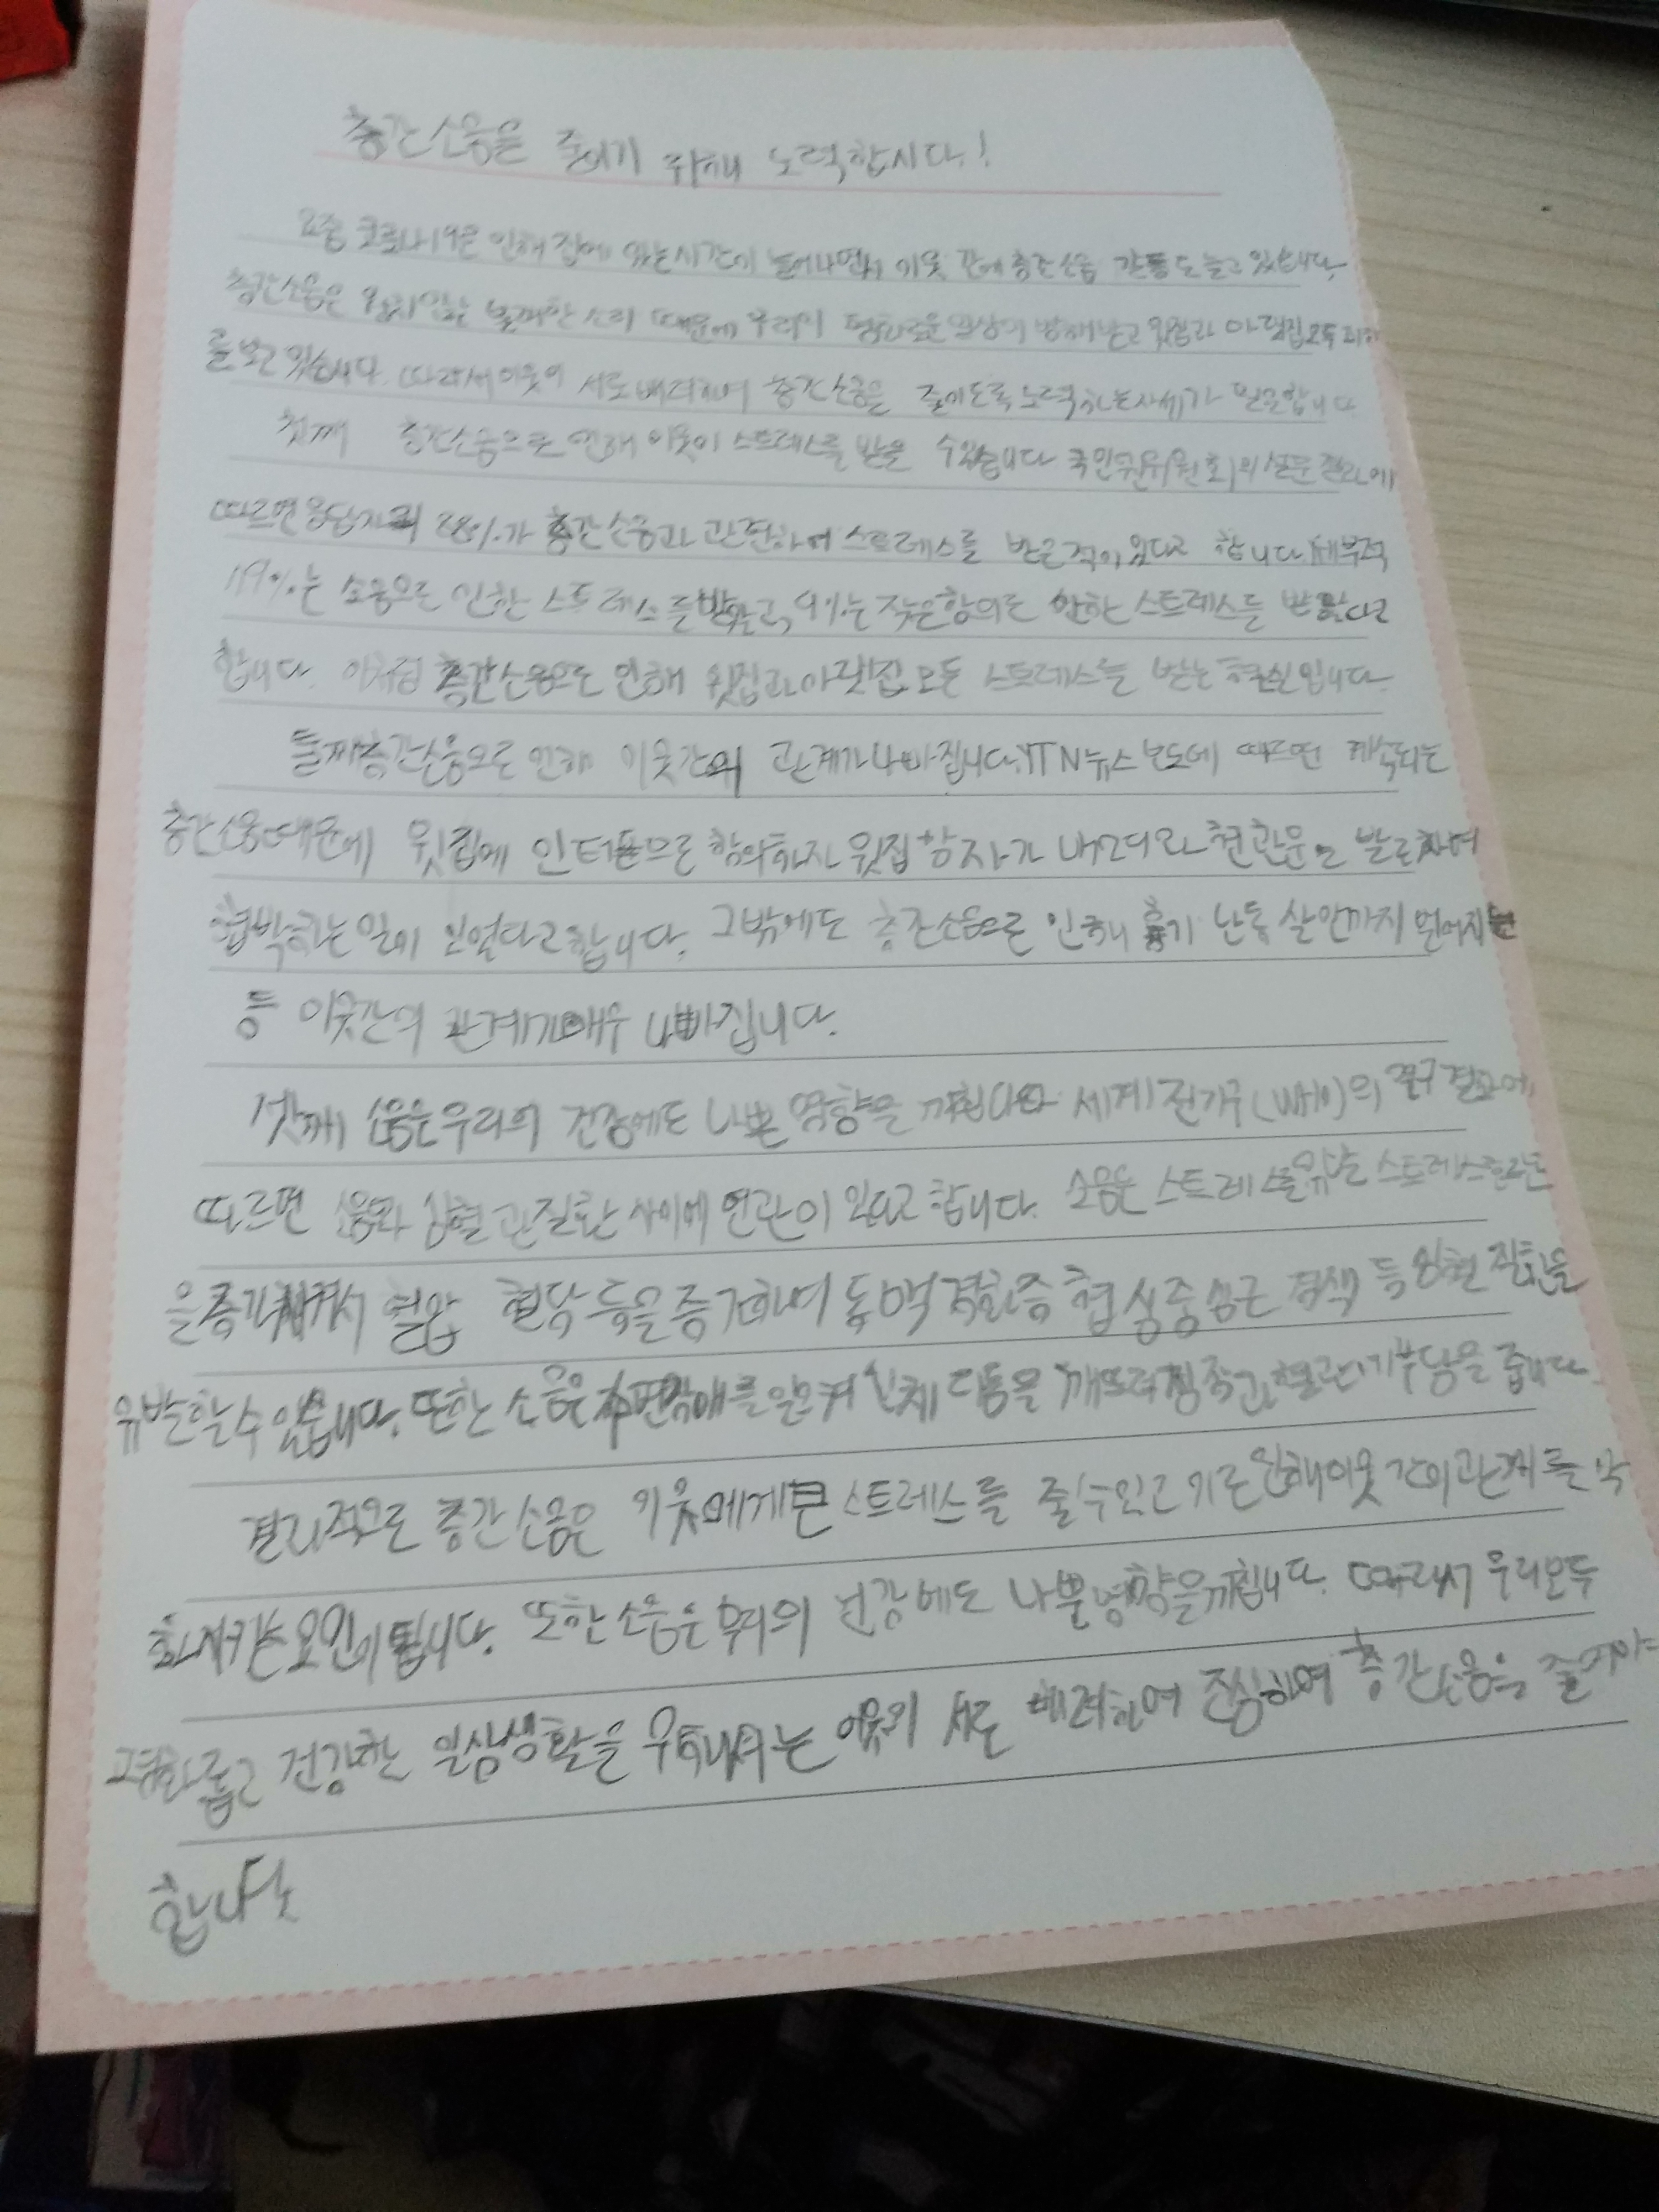 층간소음을 줄이기 위해 노력합시다!
요즘 코로나19로 인해 집에 있는시간이 늘어나면서 이웃 간에 층간소음 갈등도 늘고 있습니다.
층간소음은 불쾌한 소리 때문에 우리의 평화로운 일상이 방해받고 윗집과 아랫집모두 피해
를보고 있습니다. 따라서이웃이 서로배려하여 층간소음을 줄이도록노력하는자세가 필요합니다
첫째 층간소음으로 인해 이웃이 스트레스를 받을 수있습니다 국민권익위원회의 설문 결과에
따르면응답자의 88%가 층간소음과 관련하여 스트레스를 받은적이 있다고 합니다.
는 소음으로 인한 스트레스를받았고, 9%는 잦은항의로 인한 스트레스를 받았다고
합니다. 이처럼 층간소음으로 인해 윗집과아랫집 모두 스트레스를 받는 현실입니다.
둘째층간소음으로 인해 이웃간의 관계가나빠집니다.YTN뉴스보도에 따르면 계속되는
층간소음때문에 윗집에 인터폰으로 항의하자 윗집 남자가 내려와 현관문을 발로차며
협박하는일이 있었다고합니다. 그밖에도 층간소음으로 인해 흉기 난동 살인까지 벌어지는
등 이웃간의 관계가매우 나빠집니다.
셋째 소음은우리의 건강에도 나쁜 영향을 세계 (WHO)의 연구 결과에
따르면 소음과 심혈관질환 사이에 연관이 있다고합니다. 소음은 스트레스를유발 스트레스호르몬
을증가시켜서 혈압 혈당 등을증가하여 동맥경화증 협심증심근 경색 등 질환을
유발할수 있습니다. 또한 소음은수면장애를일으켜 인체 리듬을 깨뜨려 부담을 줍니다.
결과적으로 층간소음은 이웃에게큰스트레스를 줄수있고 이로인해이웃간의관계를 악
화시키는요인이됩니다. 또한소음은우리의 건강에도 나쁜영향을끼칩니다. 따라서 우리모두
평화롭고 건강한 일상생활을 이웃이 서로 배려하여 조심하여 층간소음을 줄여야
합니다